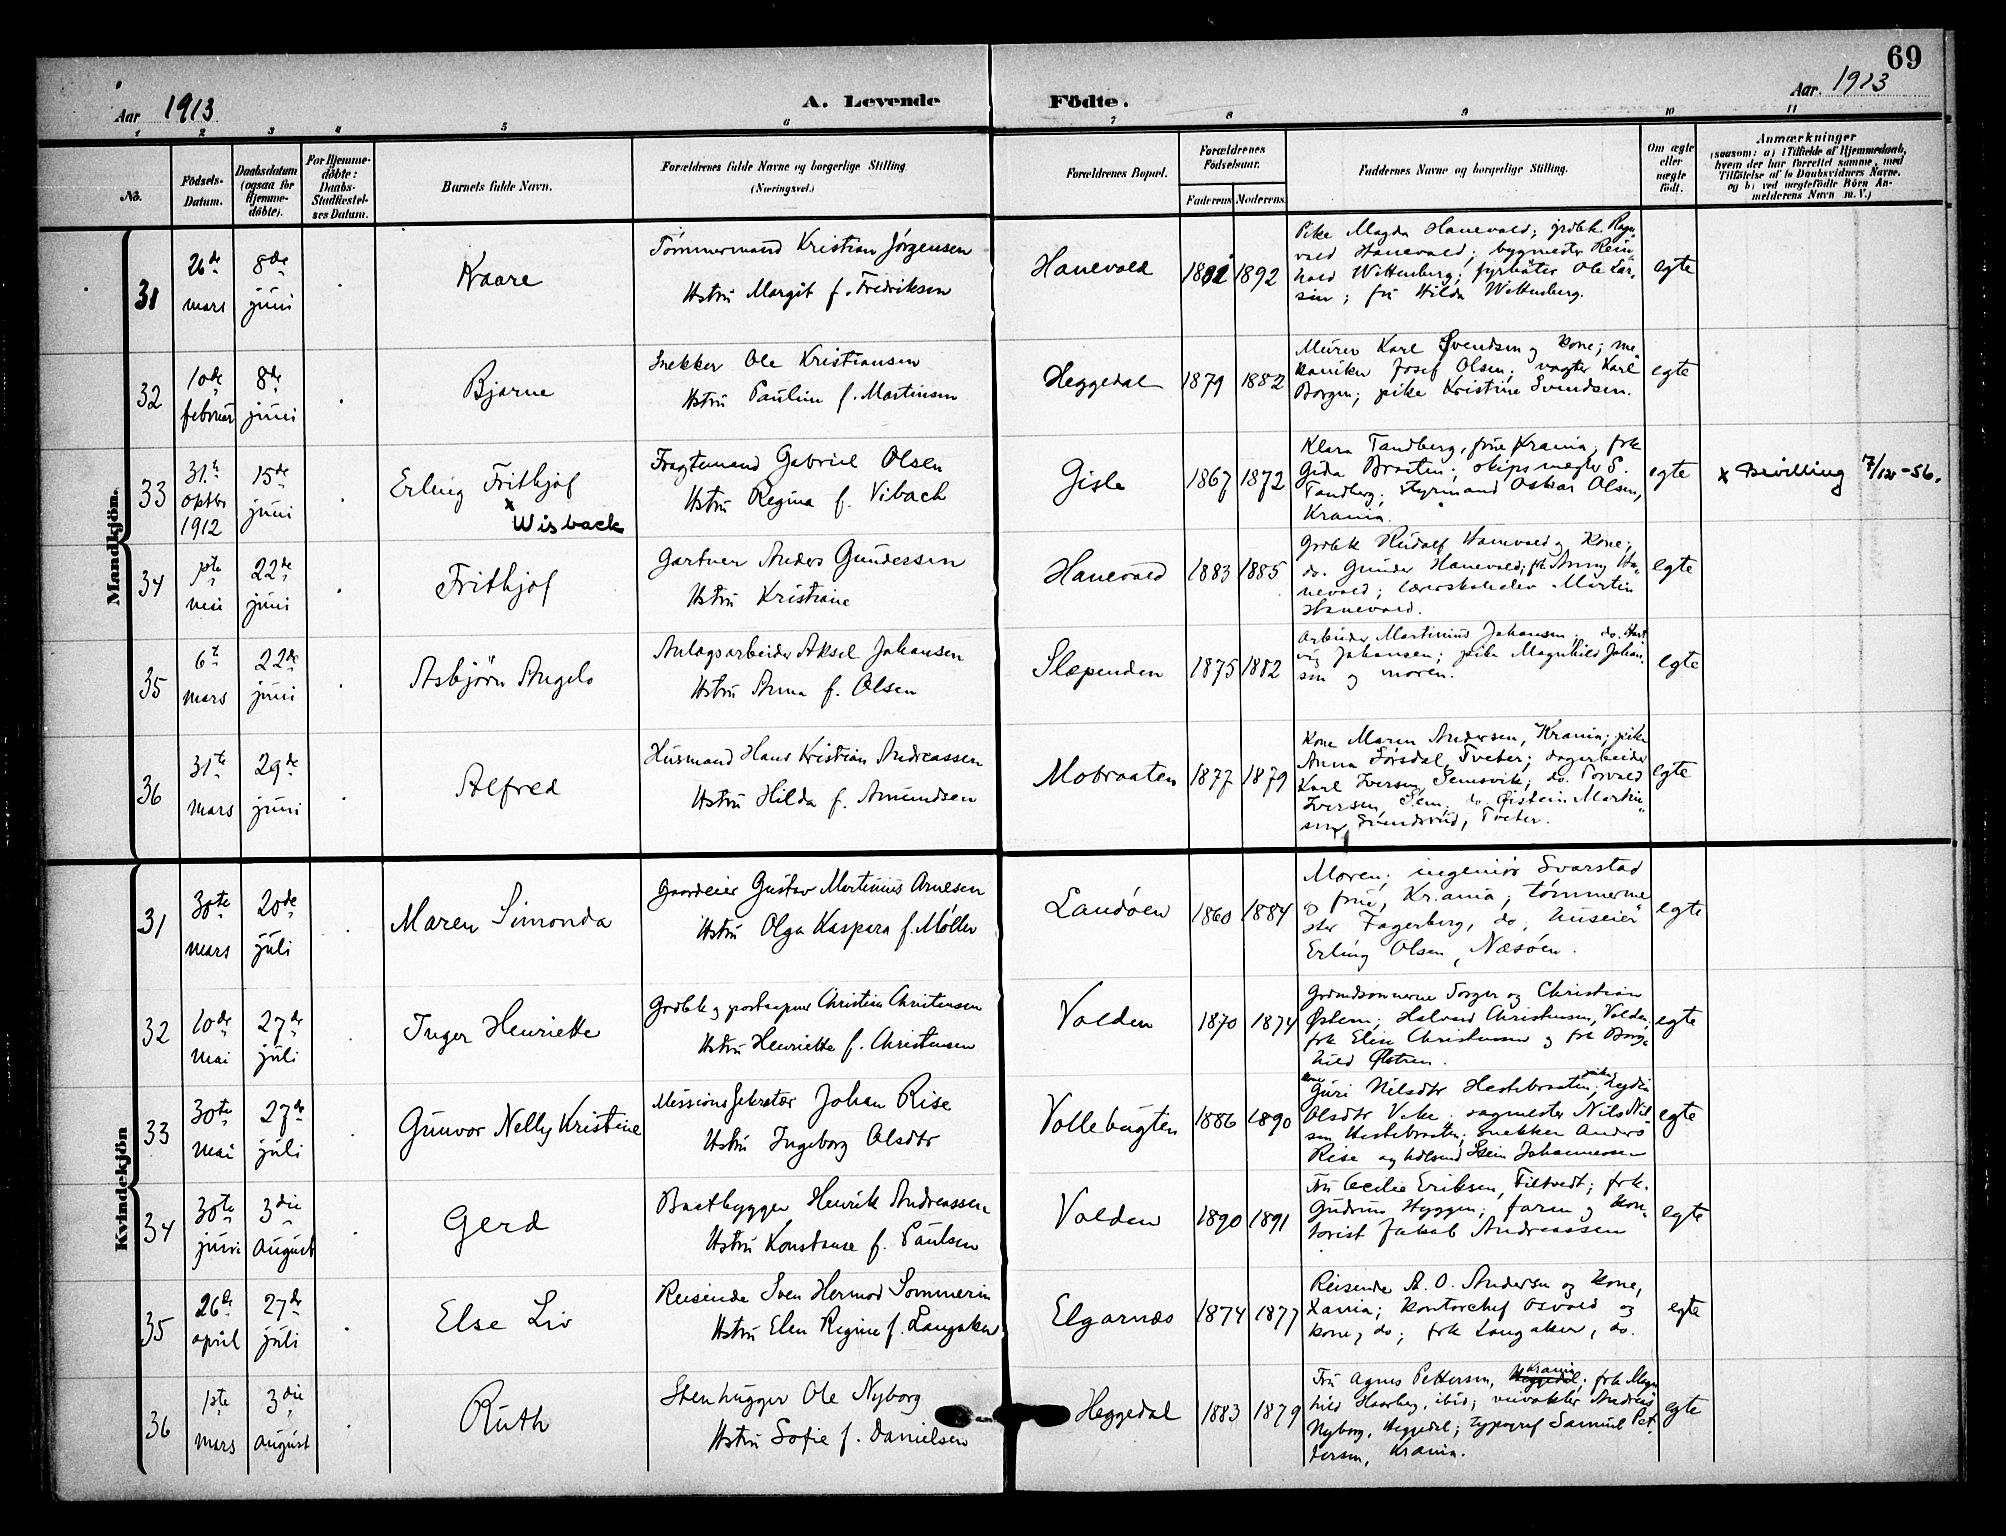 69
Aar 1913
A. Levende Födte.
Aar 1913
1 2 3 4 5 6 7 8 9 10 11
No.
Födsels-Datum.
Daabsdatum (ogsaa for Hjemme-döbte).
For Hjemme-döbte: Daabs-Stadfestel-ses Datum.
Barnets fulde Navn.
Forældrenes fulde Navne og borgerlige Stilling
(Næringsvei.)
Forældrenes Bopæl.
Forældrenes Födselsaar.
Faderens Moderens
Faddernes Navne og borgerlige Stilling.
Om ægte eller uægte födt.
Anmærkninger
(saasom: a) i Tilfælde af Hjemmedaab, hvem der har forrettet samme, med Tilföielse af to Daabsvidners Navne, og b) ved uægtefödte Börn An-melderens Navn m. V.)
Mandkjön.
31
26de mars
8de juni
Kaare
Tømmermand Kristian Jørgensen
Hstru Margit f. Fredriksen
Hanevold
1892
Pike Magda Hanevold; grdbk Ragn-
vold Hanevold; bygmester Rein-
hold Wittenberg; fyrbøter Ole Lar-
sen; fru Hilda Wittenberg.
egte
32
10de februar
8de juni
Bjarne
Snekker Ole Kristiansen
Hstru Pauline f. Martinsen
Heggedal
1879 1882
Murer Karl Svendsen og kone; me-
kaniker Josef Olsen; vagter Karl
Borgen; pike Kristine Svendsen.
egte
33
31te oktbr 1912
15de juni
Erling Frithjof
x Wisback
Fragtemand Gabriel Olsen
Hstru Regina f. Vibach
Gisle
1867 1872
Klara Tandberg, frue Krania; frk
Gida Braaten; skipsmegler S.
Tandberg; styrmand Oskar Olsen,
Krania.
egte
x Bevilling 7/12-56.
34
1ste mai
22de juni
Frithjof
Gartner Anders Gundersen
Hstru Kristiane
Hanevold
1883 1885
Grdbk Rudolf Hanevold og kone;
do. Gunder Hanevold; frk Anny Ha-
nevold; lærerskoleelev Martin
Hanevold.
egte
35
6te mars
22de juni
Asbjörn Angelo
Anlægsarbeider Aksel Johansen
Hstru Anna f. Olsen
Slependen
1875 1882
Arbeider Martinius Johansen; do. Hart-
vig Johansen; pike Magnhild Johan-
sen og moren.
egte
36
31te mars
29de juni
Alfred
Husmand Hans Kristian Andreassen
Hstru Hilda f. Amundsen
Mobraaten
1877 1879
Kone Maren Andersen, Krania; pike
Anna Sørsdal, Tveter; dagarbeider
Karl Iversen, Semsvik; do. Torvald
Iversen, Sem; do. Øistein Martin-
sen, Svendsrud, Tveter.
egte
Kvindekjön
31
30te mars
20de juli
Maren Simonda
Gaardeier Gustav Martinius Arnesen
Hstru Olga Kaspara f. Møller
Landøen
1860 1884
Moren; ingeniør Svarstad
og frue, Kr.ania; tømmerme-
ster Fagerberg, do; huseier
Erling Olsen, Næsøen.
egte
32
10de mai
27de juli
Inger Henriette
Grdbk og postaapner Christian Christensen
Hstru Henriette f. Christensen
Volden
1870 1874
Grdmdsønnerne Torger og Christian
Østern; Halvard Christensen, Volden;
frk Elise Christensen og frk Borg-
hild Østern.
egte
33
30te mai
27de juli
Gunvor Nelly Kristine
Missionssekretær Johan Rise
Hstru Ingeborg Olsdtr
Vollebugten
1886 1890
kone Guri Nilsdtr Hestebraaten; pike Lydia
Olsdtr; sagmester Nils Nil-
sen Hestebraaten; snekker Anders
Rise og Stein Johannessen
egte
34
30te juni
3die august
Gerd
Baatbygger Henrik Andreassen
Hstru Konstanse f. Paulsen
Volden
1890 1891
Fru Cecilie Eriksen, Filtvedt; frk.
Gudrun Hyggen; faren og kon-
torist Jakob Andreassen
egte
35
26de april
27de juli
Else Liv
Reisende Sven Hermod Sommerin
Hstru Elen Regine f. Langaker
Elgarnæs
1874 1877
Reisende A. O. Andersen og kone,
Xania; kontorchef Osvold og
kone, do; frk Langaker, do.
egte
36
1ste mars
3die august
Ruth
Stenhugger Ole Nyborg
Hstru Sofie f. Danielsen
Heggedal
1883 1879
Fru Agnes Pettersen, Krania; frk Magn-
hild Haarberg, ibid; veivokter Andreas
Nyborg, Heggedal; typograf Samuel Pet-
tersen, Krania.
egte